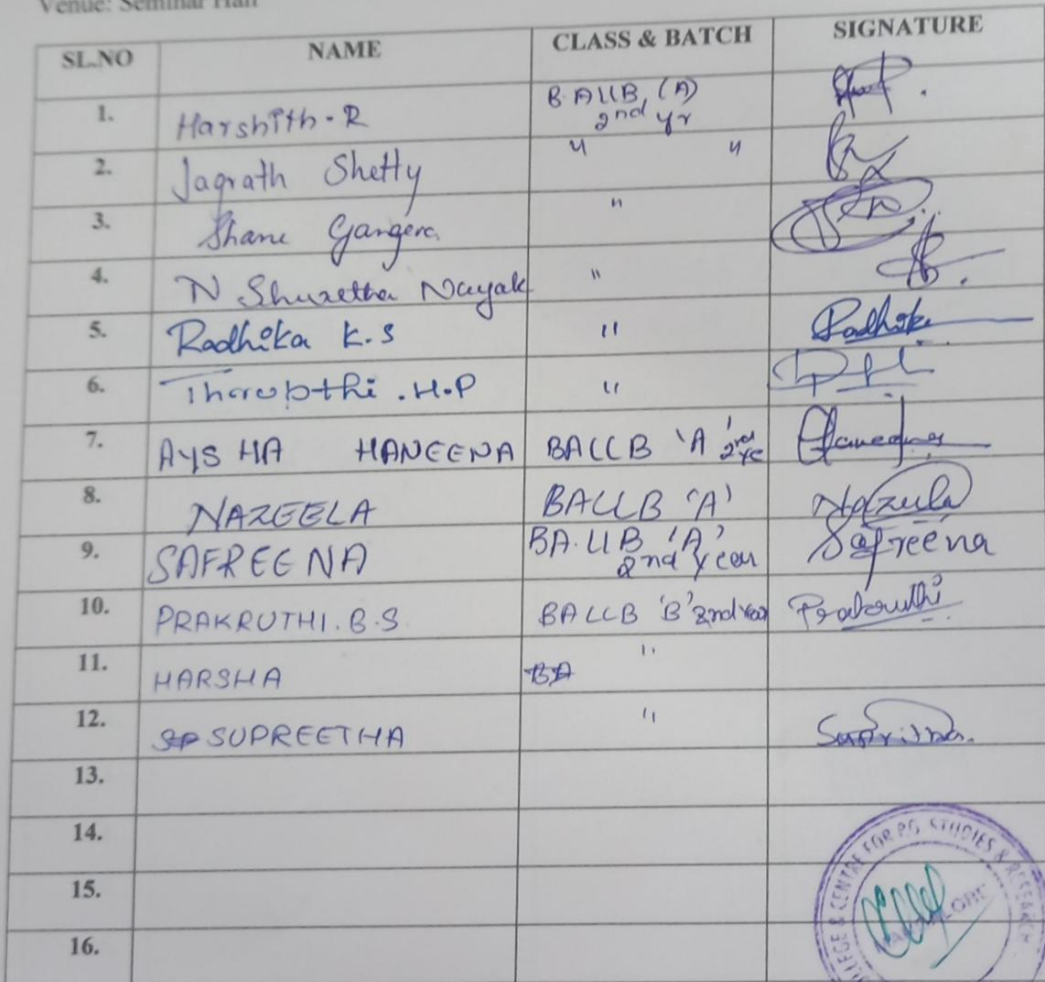 Venue: Seminar Hall
SL.NO NAME CLASS & BATCH SIGNATURE
1. Harshith.R B.ALLB, (A)
2nd yr
2. Jagrath Shetty " "
3. Shane "
4. N Nayak "
5. Radhika K.S " Radhika
6. .H.P "
7. AYSHA HANEENA BALLB 'A'
8. NAZEELA BALLB 'A' Nazeela
9. SAFREENA BA.LLB 'A'
2nd year Safreena
10. PRAKRUTHI.B.S BALLB 'B' 2nd year Prakruthi
11. HARSHA "
BA
12. SUPREETHA "
13.
14.
15.
16.
LLEGE & CENTRE FOR PG STUDIES & RESEARCH
MANGALORE